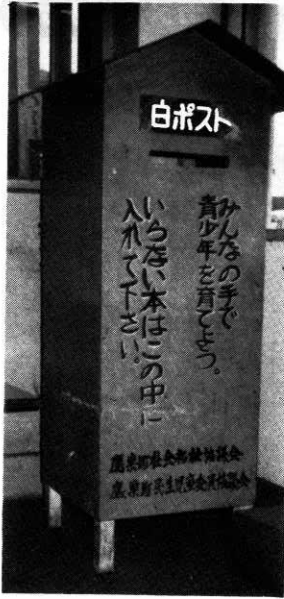 白ポスト
みんなの手で
青少年を育てよう。
いらない本はこの中に
入れて下さい。
社会福祉協議会
民生児童委員協議会